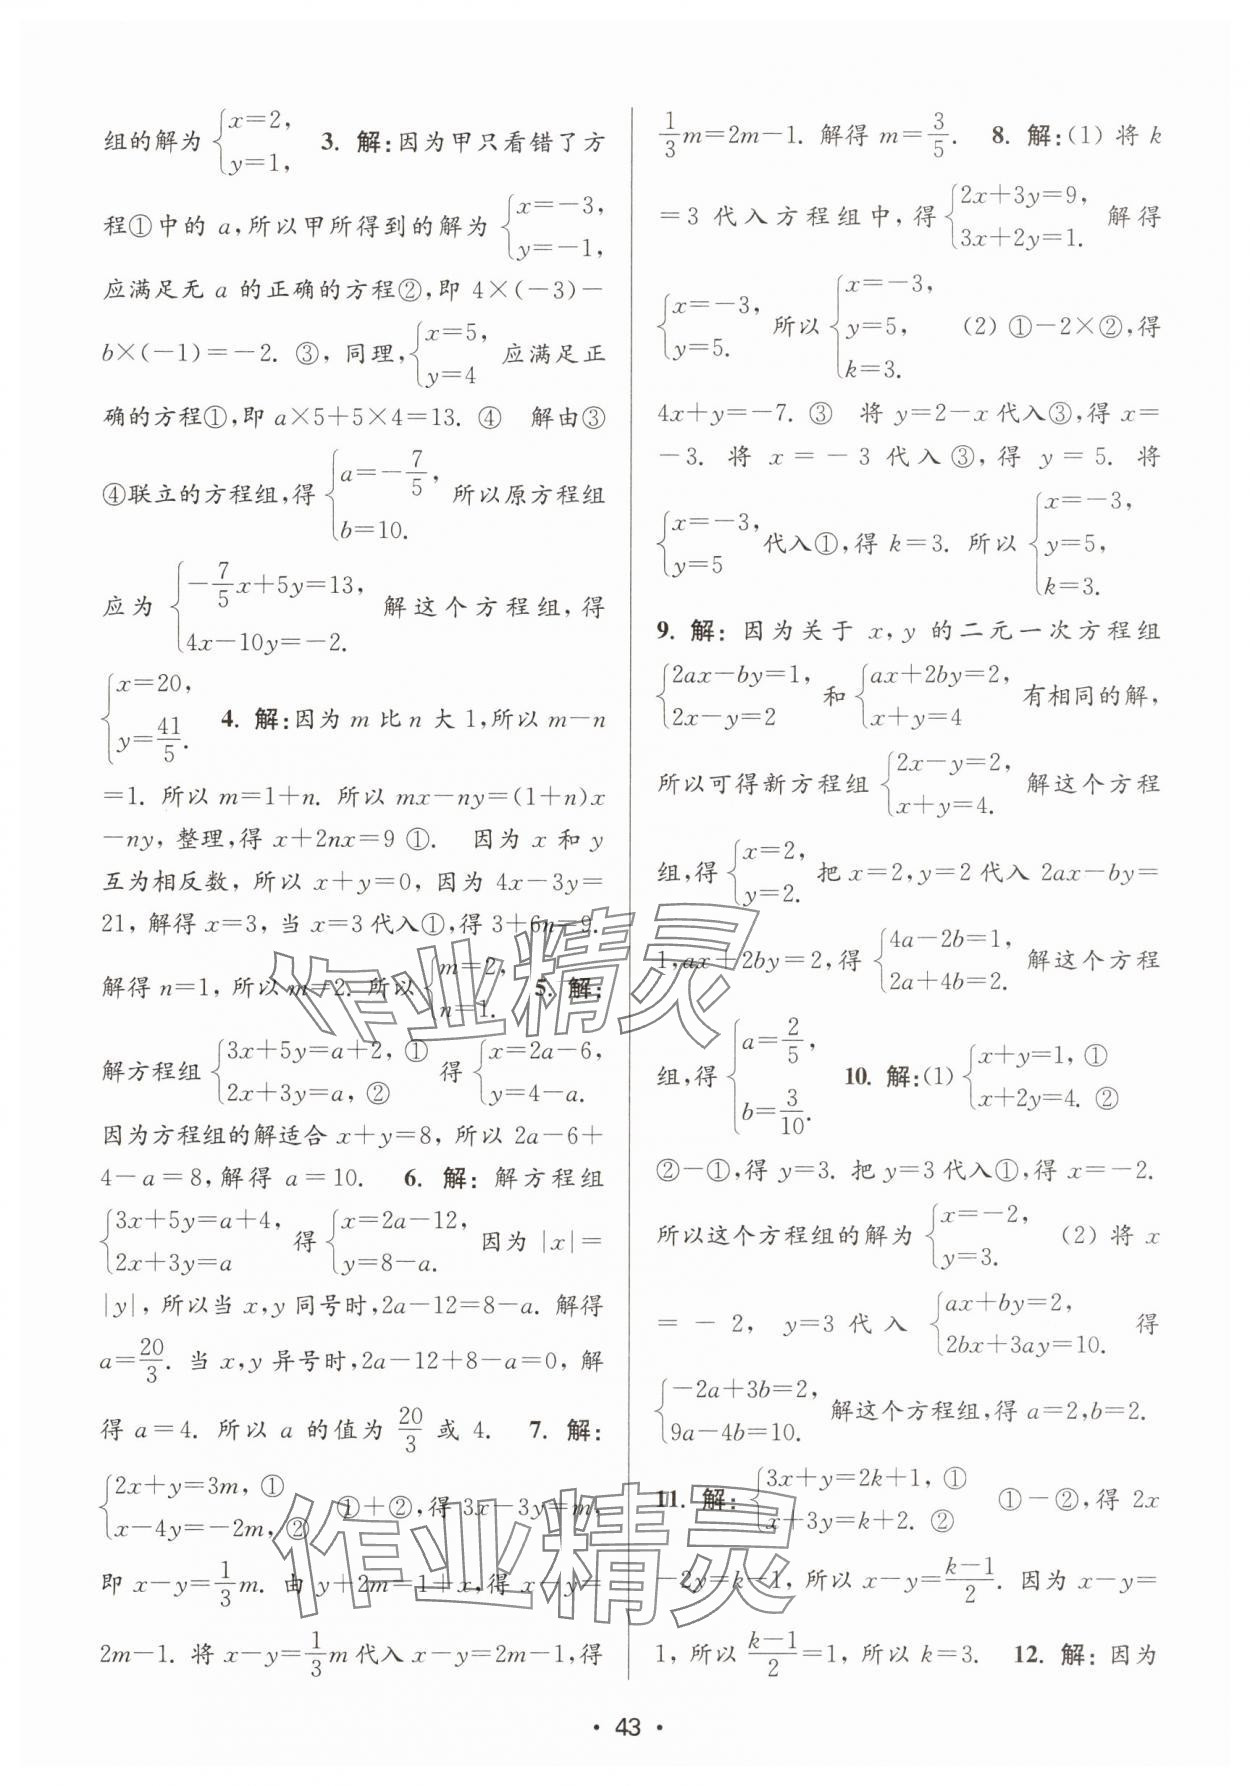 组的解为 {x=2, y=1, 3. 解:因为甲只看错了方
程①中的 a,所以甲所得到的解为 {x=-3, y=-1,
应满足无 a 的正确的方程②,即 4×(-3)-
b×(-1)=-2. ③, 同理, {x=5, y=4 应满足正
确的方程①,即 a×5+5×4=13. ④ 解由③
④联立的方程组,得 {a=-7/5, b=10. 所以原方程组
应为 {-7/5x+5y=13, 4x-10y=-2. 解这个方程组,得
{x=20, y=41/5. 4. 解:因为 m 比 n 大 1,所以 m-n
=1. 所以 m=1+n. 所以 mx-ny=(1+n)x
-ny, 整理,得 x+2nx=9 ①. 因为 x 和 y
互为相反数, 所以 x+y=0, 因为 4x-3y=
21, 解得 x=3, 当 x=3 代入①,得 3+6n=9.
解得 n=1, 所以 m=2. 所以 {m=2, n=1. 5. 解:
解方程组 {3x+5y=a+2, ① 2x+3y=a, ② 得 {x=2a-6, y=4-a.
因为方程组的解适合 x+y=8, 所以 2a-6+
4-a=8,解得 a=10. 6. 解: 解方程组
{3x+5y=a+4, 2x+3y=a 得 {x=2a-12, y=8-a. 因为 |x|=
|y|, 所以当 x,y 同号时,2a-12=8-a. 解得
a=20/3. 当 x,y 异号时,2a-12+8-a=0, 解
得 a=4. 所以 a 的值为 20/3 或 4. 7. 解:
{2x+y=3m, ① x-4y=-2m, ② ①+②,得 3x-3y=m,
即 x-y=1/3m. 由 y+2m=1+x,得 x-y=
2m-1. 将 x-y=1/3m 代入 x-y=2m-1,得
1/3m=2m-1. 解得 m=3/5. 8. 解:(1) 将 k
=3 代入方程组中,得 {2x+3y=9, 3x+2y=1. 解得
{x=-3, y=5. 所以 {x=-3, y=5, k=3. (2) ①-2×②,得
4x+y=-7. ③ 将 y=2-x 代入③,得 x=
-3. 将 x=-3 代入③,得 y=5. 将
{x=-3, y=5 代入①,得 k=3. 所以 {x=-3, y=5, k=3.
9. 解: 因为关于 x,y 的二元一次方程组
{2ax-by=1, 2x-y=2 和 {ax+2by=2, x+y=4 有相同的解,
所以可得新方程组 {2x-y=2, x+y=4. 解这个方程
组,得 {x=2, y=2. 把 x=2,y=2 代入 2ax-by=
1,ax+2by=2,得 {4a-2b=1, 2a+4b=2. 解这个方程
组,得 {a=2/5, b=3/10. 10. 解:(1) {x+y=1, ① x+2y=4. ②
②-①,得 y=3. 把 y=3 代入①,得 x=-2.
所以这个方程组的解为 {x=-2, y=3. (2) 将 x
=-2, y=3 代入 {ax+by=2, 2bx+3ay=10. 得
{-2a+3b=2, 9a-4b=10. 解这个方程组,得 a=2,b=2.
11. 解: {3x+y=2k+1, ① x+3y=k+2. ② ①-②,得 2x
-2y=k-1, 所以 x-y=k-1/2. 因为 x-y=
1, 所以 k-1/2=1, 所以 k=3. 12. 解: 因为
· 43 ·
作业精灵
作业精灵